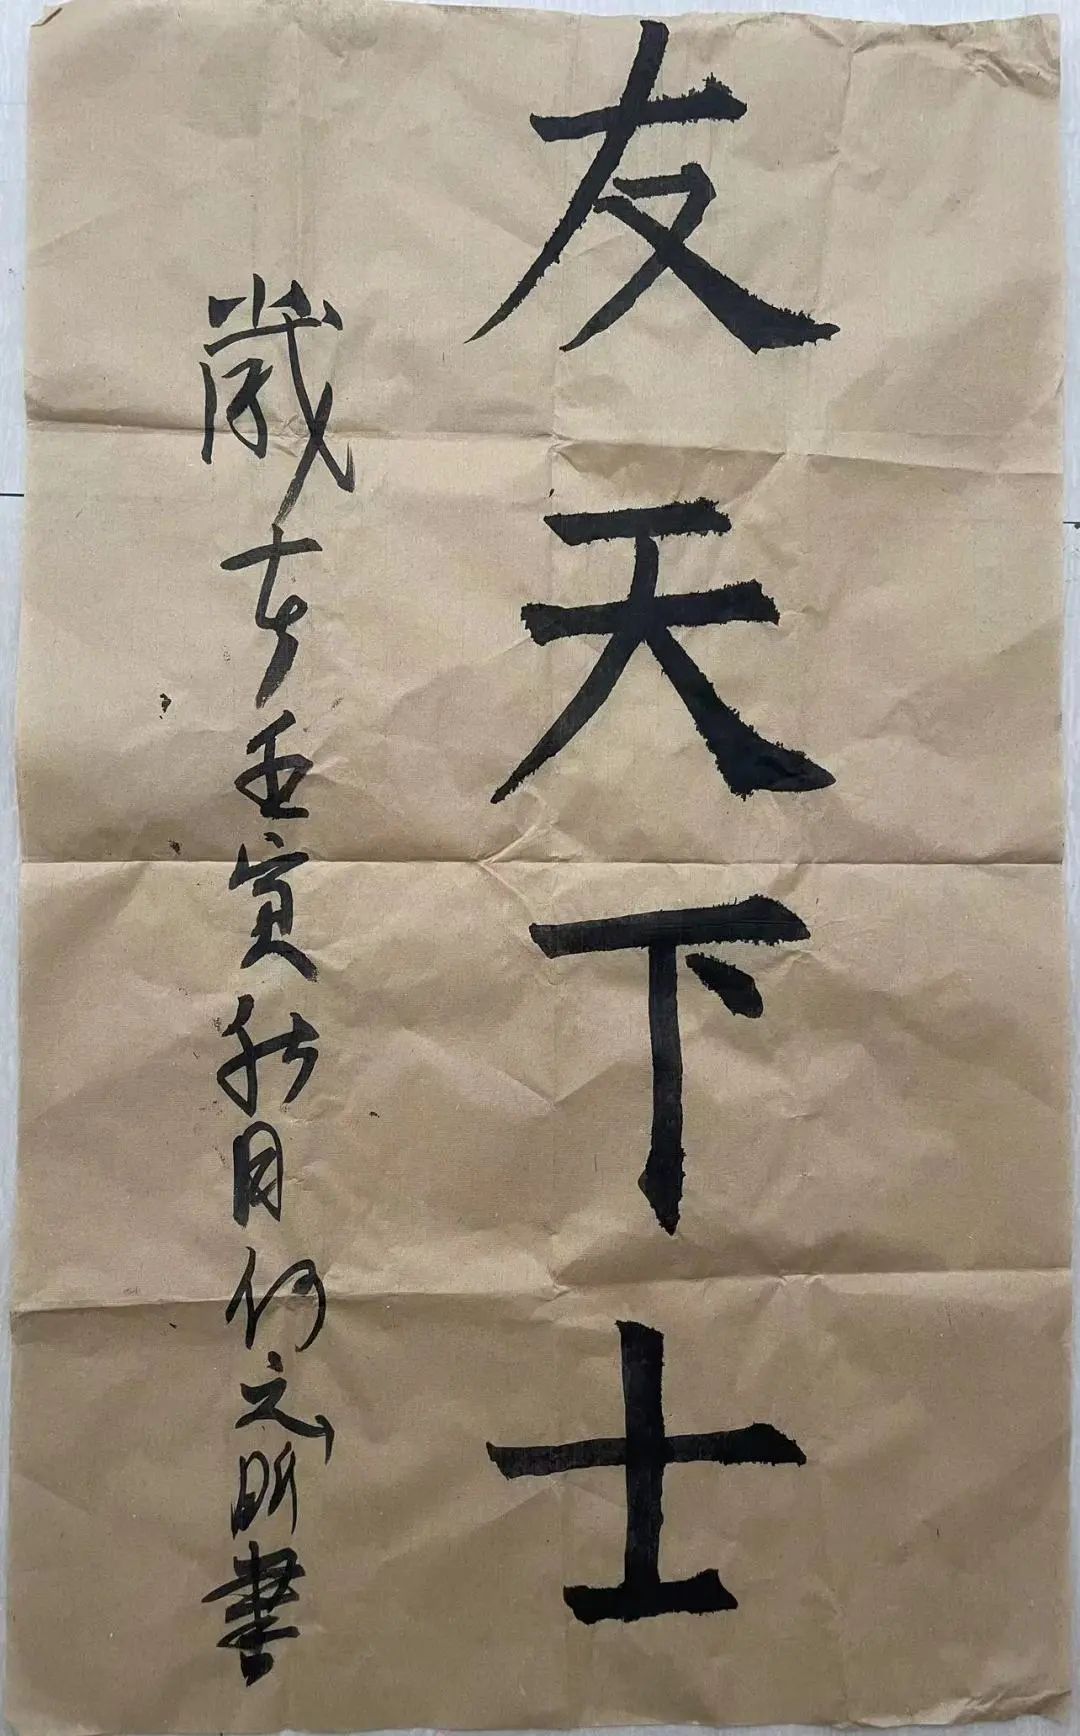 友天下士
歲在壬寅秋月何元明書